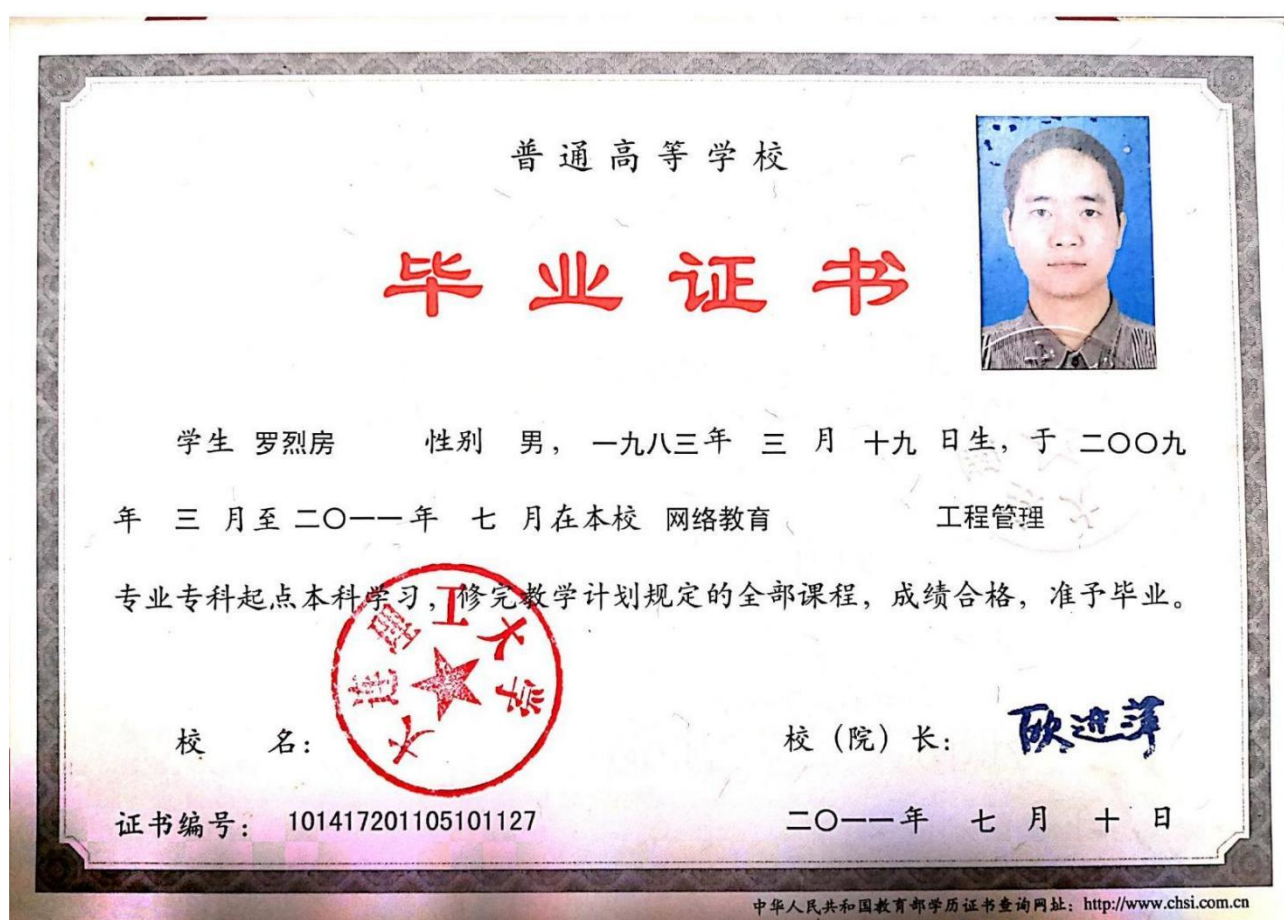 普通高等学校
毕业证书
学生 罗烈房 性别 男, 一九八三年 三 月 十九 日生, 于 二〇〇九
年 三 月至 二〇一一年 七 月在本校 网络教育 工程管理
专业专科起点本科学习, 修完教学计划规定的全部课程, 成绩合格, 准予毕业。
大连理工大学
校 名: 校（院）长: 欧进萍
证书编号: 101417201105101127 二〇一一年 七 月 十 日
中华人民共和国教育部学历证书查询网址: http://www.chsi.com.cn